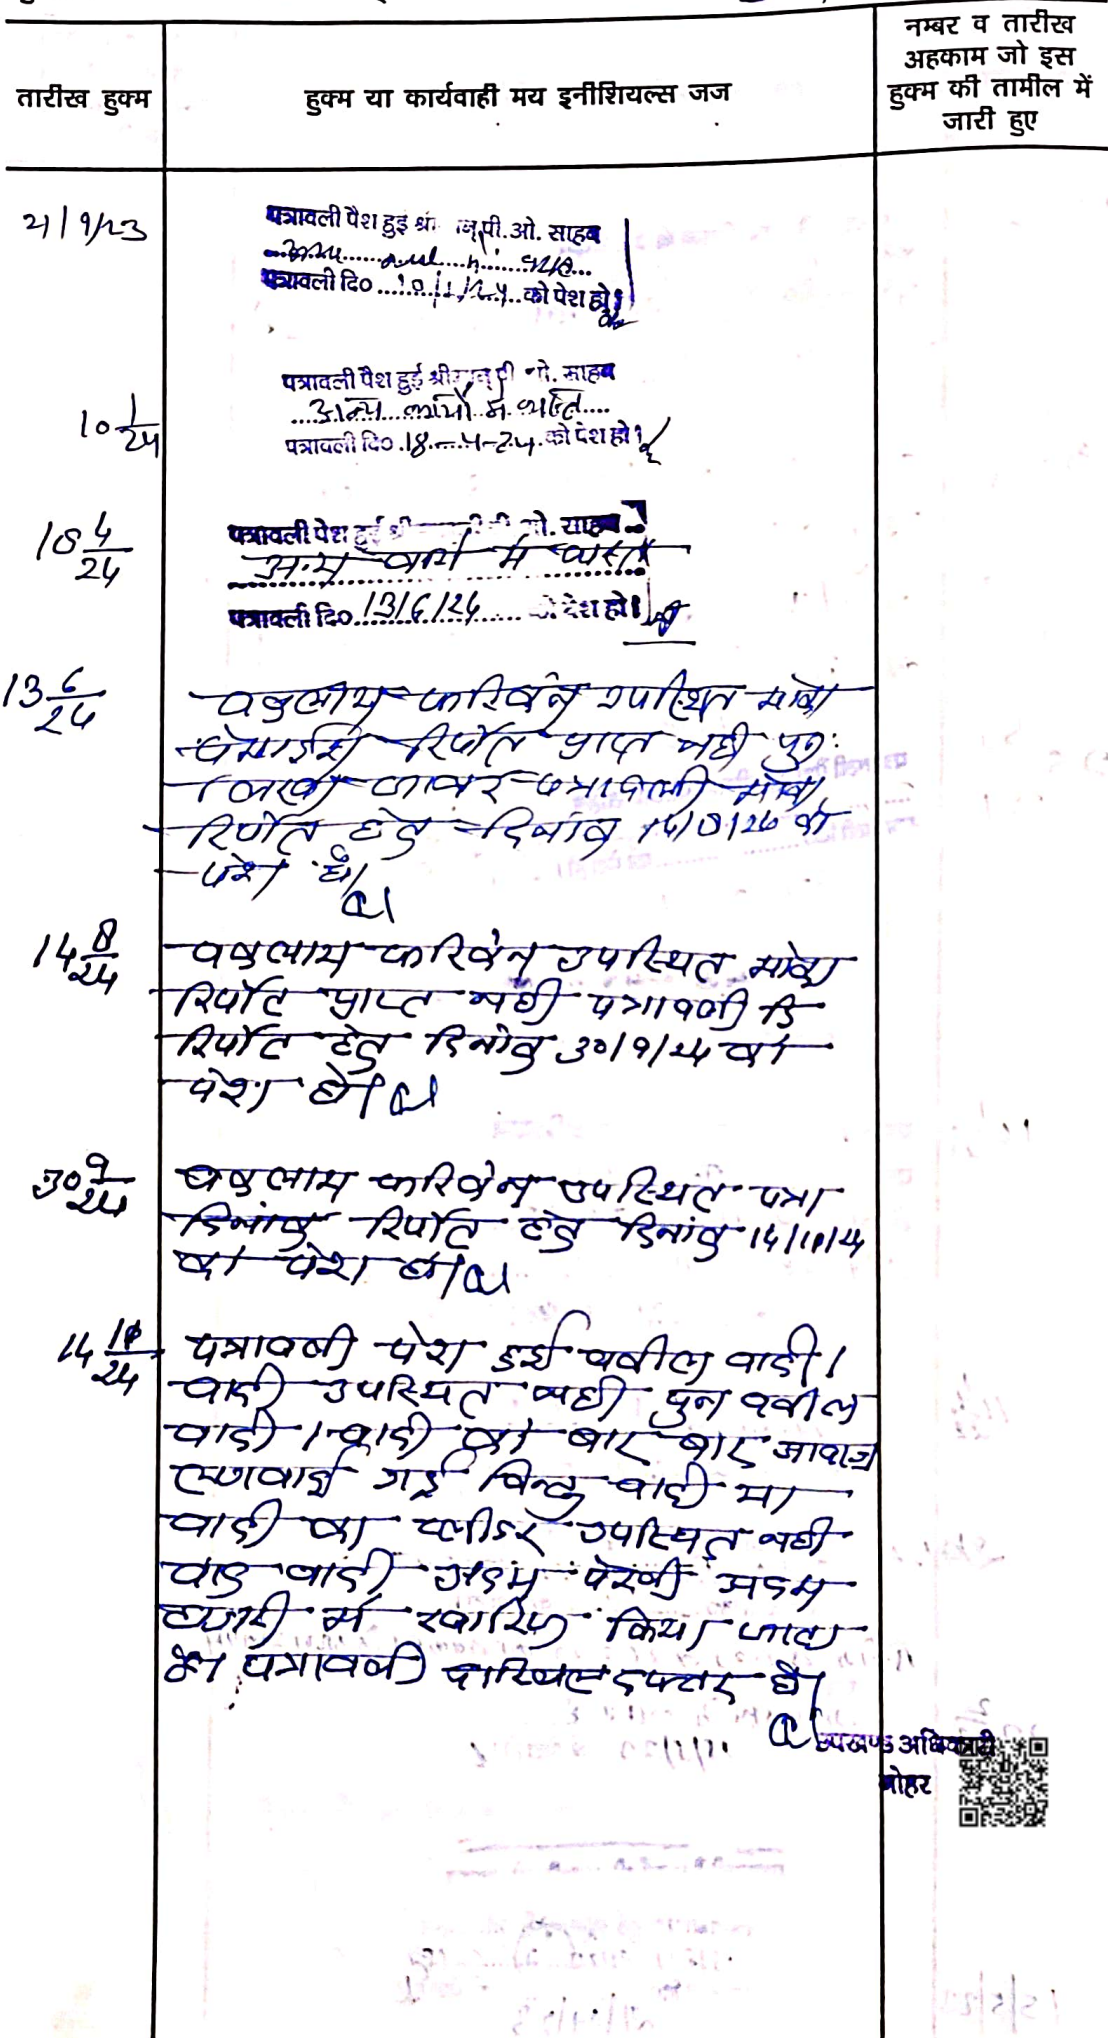 नम्बर व तारीख
अहकाम जो इस
हुक्म की तामील में
जारी हुए
तारीख हुक्म
हुक्म या कार्यवाही मय इनीशियल्स जज
पत्रावली पेश हुई श्री पी.ओ. साहब
पत्रावली दि० 10/1/24 को पेश हो।
10 1/24
पत्रावली पेश हुई श्री साहब
अन्य कार्यो में व्यस्त
पत्रावली दि० 18-4-24 को पेश हो।
18 4/24
पत्रावली पेश हुई श्री ओ. साहब
अन्य कार्य में व्यस्त
पत्रावली दि० 13/6/24 को पेश हो।
13 6/24
वकुलाय फरिकेन उपस्थित मोका
रिर्पोट प्राप्त नही पुन:
जावर पत्रावली मोका
रिर्पोट हेतु दिनांक 14/8/24 को
पेश हो।
14 8/24
वकुलाय फरिकेन उपस्थित मोका
रिर्पोट प्राप्त नही पत्रावली
रिर्पोट हेतु दिनांक 30/9/24 को
पेश हो।
30 9/24
वकुलाय फरिकेन उपस्थित पत्रा
दिनांक रिर्पोट हेतु दिनांक
को पेश हो।
पत्रावली पेश हुई वकील वादी।
वादी उपस्थित नही पुन वकील
वादी । वादी को बार बार आवाज
लगवाई गई किन्तु वादी या
वादी का प्लीडर उपस्थित नही
वाद वादी अदम पेरवी अदम
हाजरी में खारिज किया जाता
है। पत्रावली दाखिल दफ्तर हो।
उपखण्ड अधिकारी
नोहर